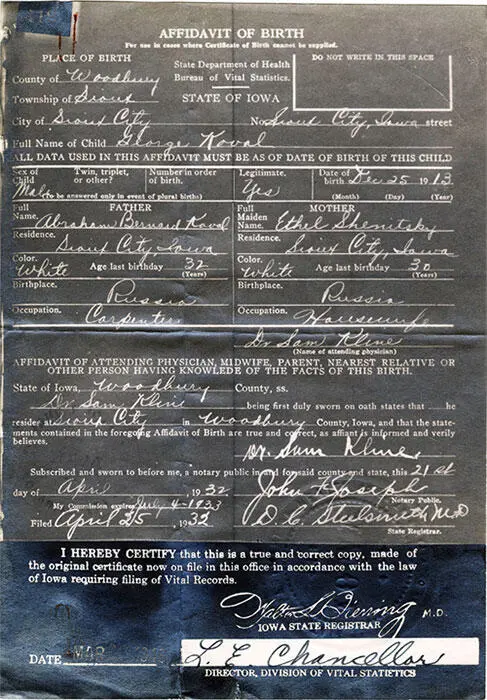 AFFIDAVIT OF BIRTH
For use in cases where Certificate of Birth cannot be supplied.
PLACE OF BIRTH
State Department of Health
DO NOT WRITE IN THIS SPACE
County of Woodbury
Bureau of Vital Statistics.
Township of Sioux
STATE OF IOWA
City of Sioux City No. Sioux City, Iowa street
Full Name of Child George Koval
ALL DATA USED IN THIS AFFIDAVIT MUST BE AS OF DATE OF BIRTH OF THIS CHILD
Sex of Child Male
Twin, triplet, or other?
Number in order of birth.
(To be answered only in event of plural births)
Legitimate. Yes
Date of birth Dec 25 1913
(Month) (Day) (Year)
FATHER
Full Name. Abraham Bernard Koval
Residence. Sioux City, Iowa
Color. White Age last birthday 32 (Years)
Birthplace. Russia
Occupation. Carpenter
MOTHER
Full Maiden Name. Ethel Shenitsky
Residence. Sioux City, Iowa
Color. White Age last birthday 30 (Years)
Birthplace. Russia
Occupation. Housewife
Dr Sam Kline
(Name of attending physician)
AFFIDAVIT OF ATTENDING PHYSICIAN, MIDWIFE, PARENT, NEAREST RELATIVE OR
OTHER PERSON HAVING KNOWLEDE OF THE FACTS OF THIS BIRTH.
State of Iowa, Woodbury County, ss.
Dr Sam Kline being first duly sworn on oath states that he
resides at Sioux City in Woodbury County, Iowa, and that the state-
ments contained in the foregoing Affidavit of Birth are true and correct, as affiant is informed and verily
believes.
Dr. Sam Kline
Subscribed and sworn to before me, a notary public in and for said county and state, this 21st
day of April, 1932. John F. Joseph
Notary Public.
My Commission expires July 4-1933
Filed April 25, 1932 D. C. Steelsmith M.D
State Registrar.
I HEREBY CERTIFY that this is a true and correct copy, made of
the original certificate now on file in this office in accordance with the law
of Iowa requiring filing of Vital Records.
Walter L. Bierring M.D.
IOWA STATE REGISTRAR
DATE MAR
L. E. Chancellor
DIRECTOR, DIVISION OF VITAL STATISTICS